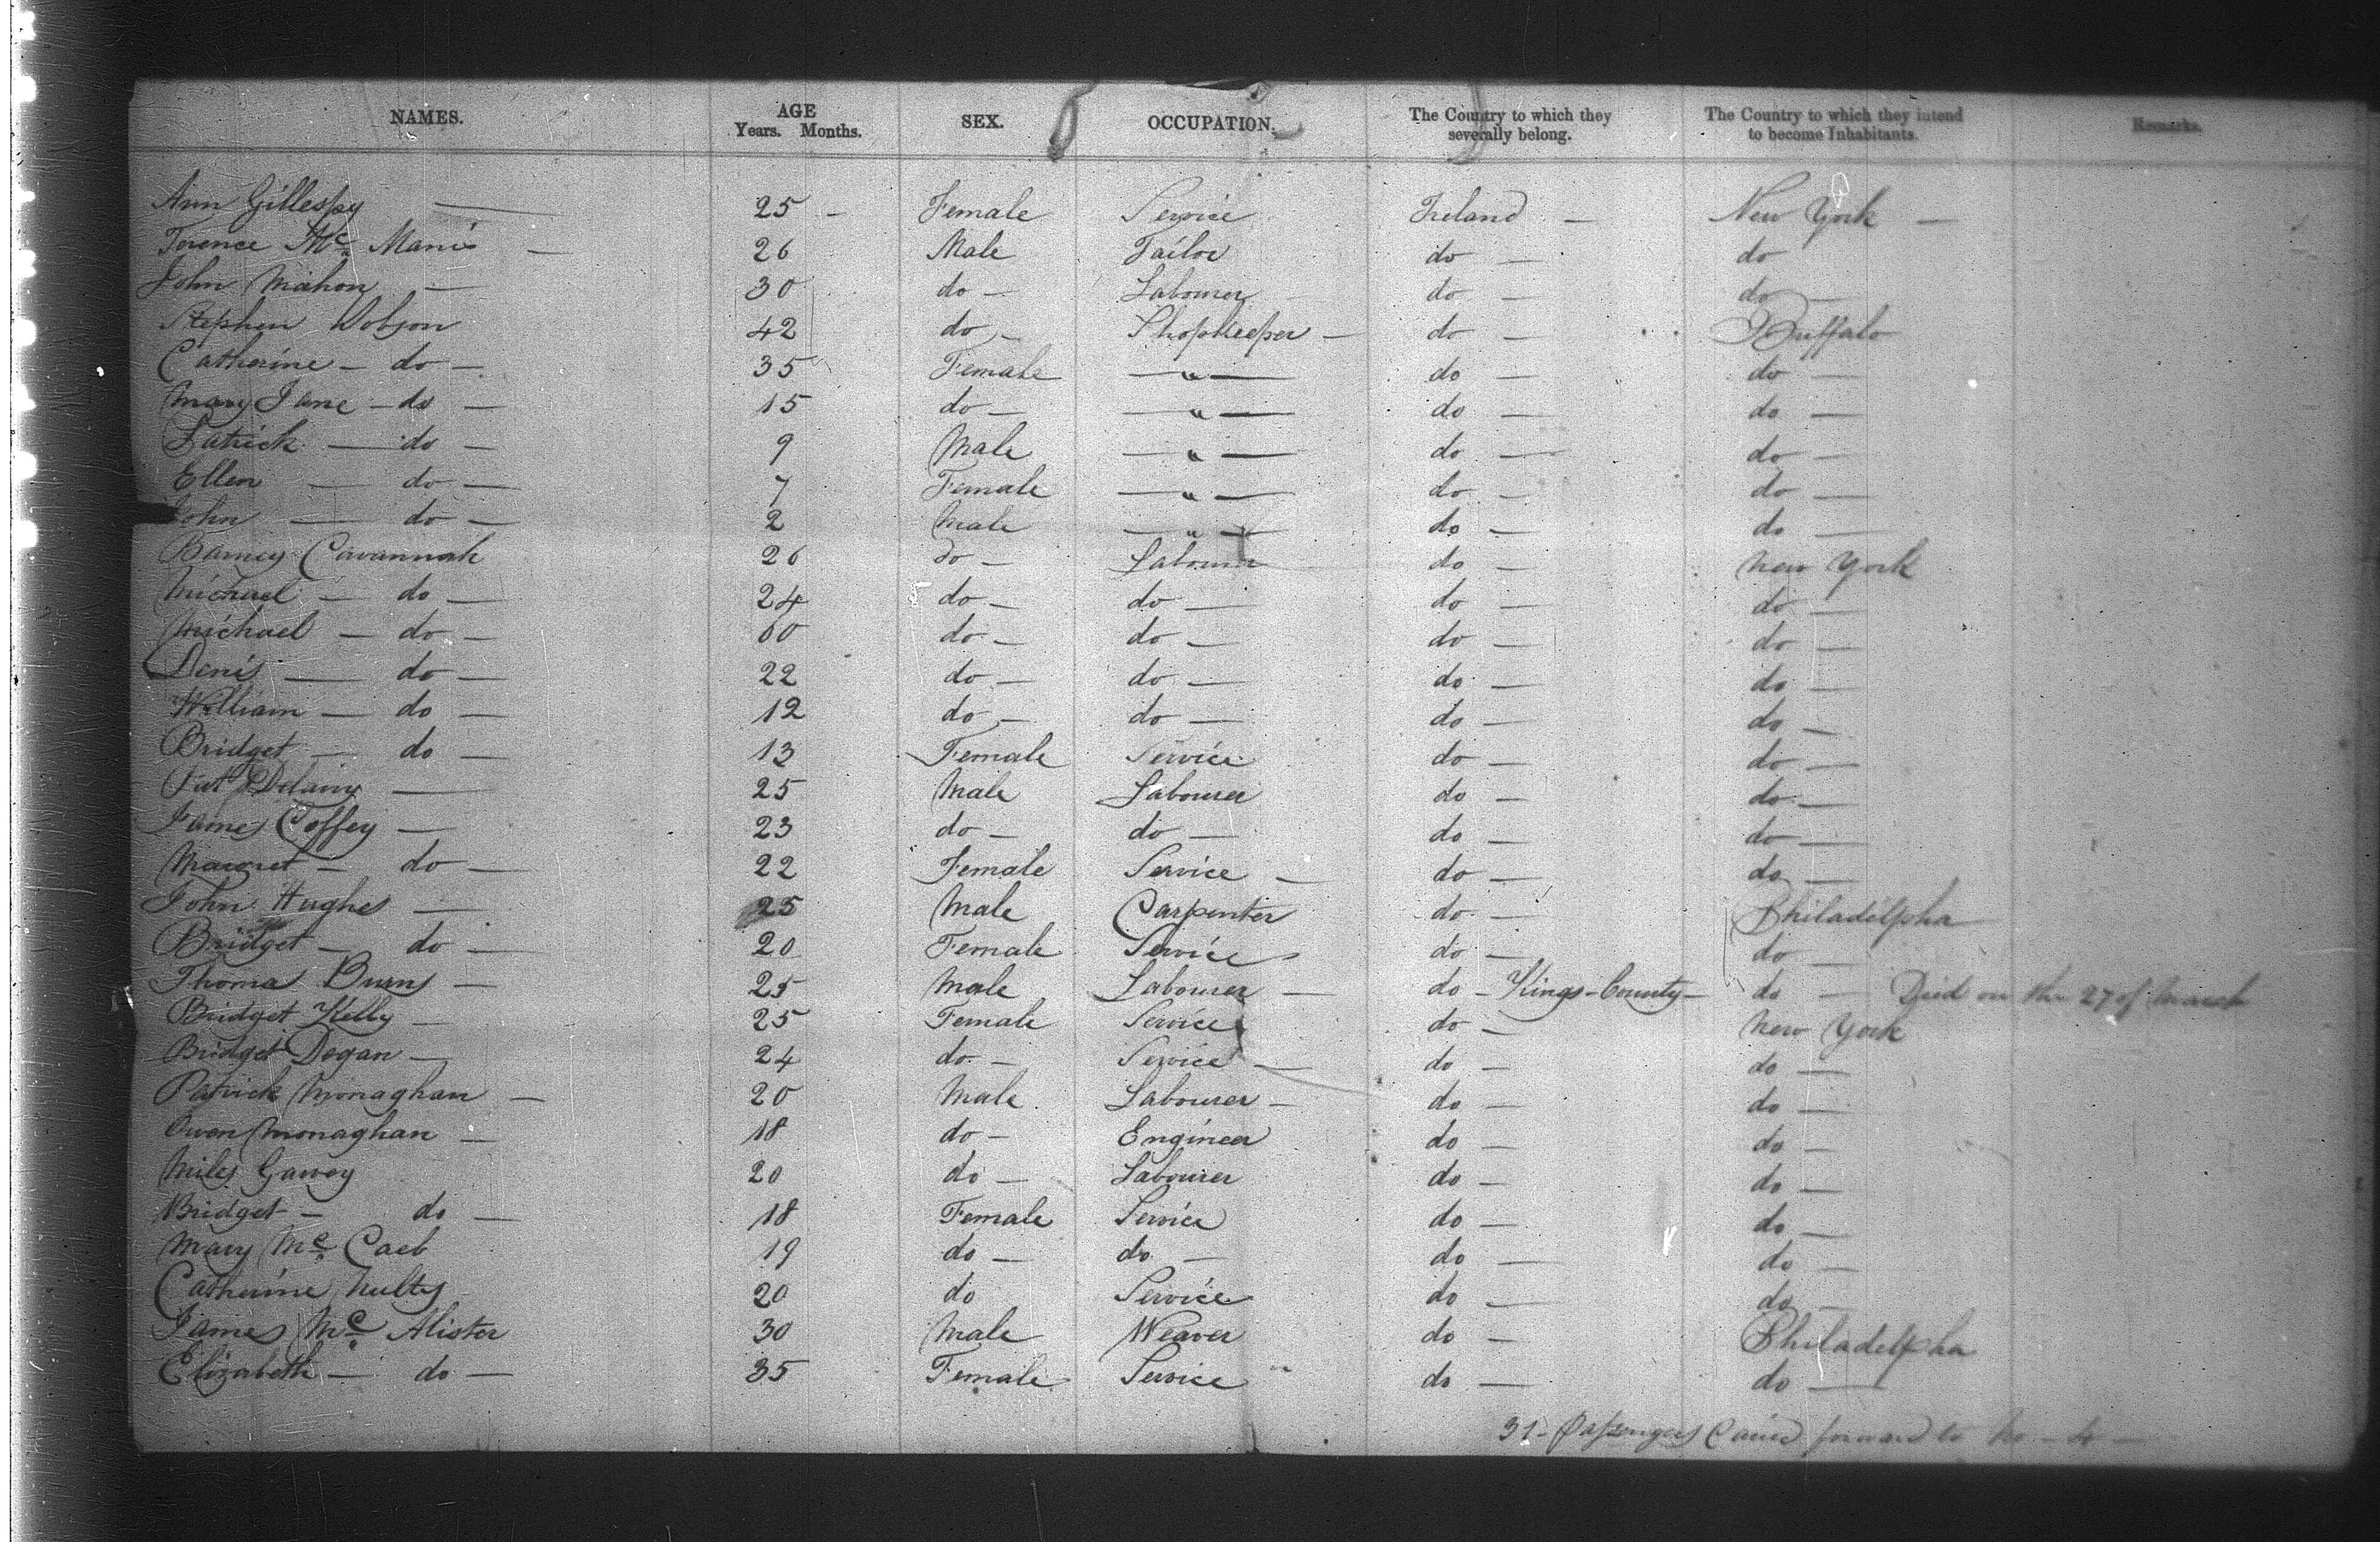 NAMES. AGE Years. Months. SEX. OCCUPATION. The Country to which they severally belong. The Country to which they intend to become Inhabitants. Remarks.
Ann Gillespy — 25 - Female Service Ireland — New York —
Terence Mc Manis — 26 Male Tailor do — do
John Mahon — 30 do — Labourer do — do —
Stephen Dobson 42 do — Shopkeeper — do — Buffalo
Catherine — do — 35 Female — " — do — do —
Mary Jane — do — 15 do — — " — do — do —
Patrick — do — 9 Male — " — do — do —
Ellen — do — 7 Female — " — do — do —
John — do — 2 Male — " — do — do —
Barney Cavannah 26 do — Labourer do — New York
Michael — do — 24 do — do — do — do —
Michael — do — 60 do — do — do — do —
Denis — do — 22 do — do — do — do —
William — do — 12 do — do — do — do —
Bridget — do — 13 Female Service do — do —
Pat Delany — 25 Male Labourer do — do —
James Coffey — 23 do — do — do — do —
Margret — do — 22 Female Service — do — do —
John Hughes — 25 Male Carpenter do — Philadelpha
Bridget — do — 20 Female Service do — do —
Thomas Burns — 25 Male Labourer — do - Kings-County — do — Died on the 27 of March
Bridget Kelly — 25 Female Service do — New York
Bridget Degan — 24 do — Service — do — do —
Patrick Monaghan — 20 Male Labourer — do — do —
Owen Monaghan — 18 do — Engineer do — do —
Miles Garvey 20 do — Labourer do — do —
Bridget — do — 18 Female Service do — do —
Mary Mc Caeb 19 do — do — do — do —
Catherine Nulty 20 do Service do — do —
James Mc Alister 30 Male Weaver do — Philadelpha
Elizabeth — do — 35 Female Service " do — do —
31 - Passengers Caried forward to No - 4 —